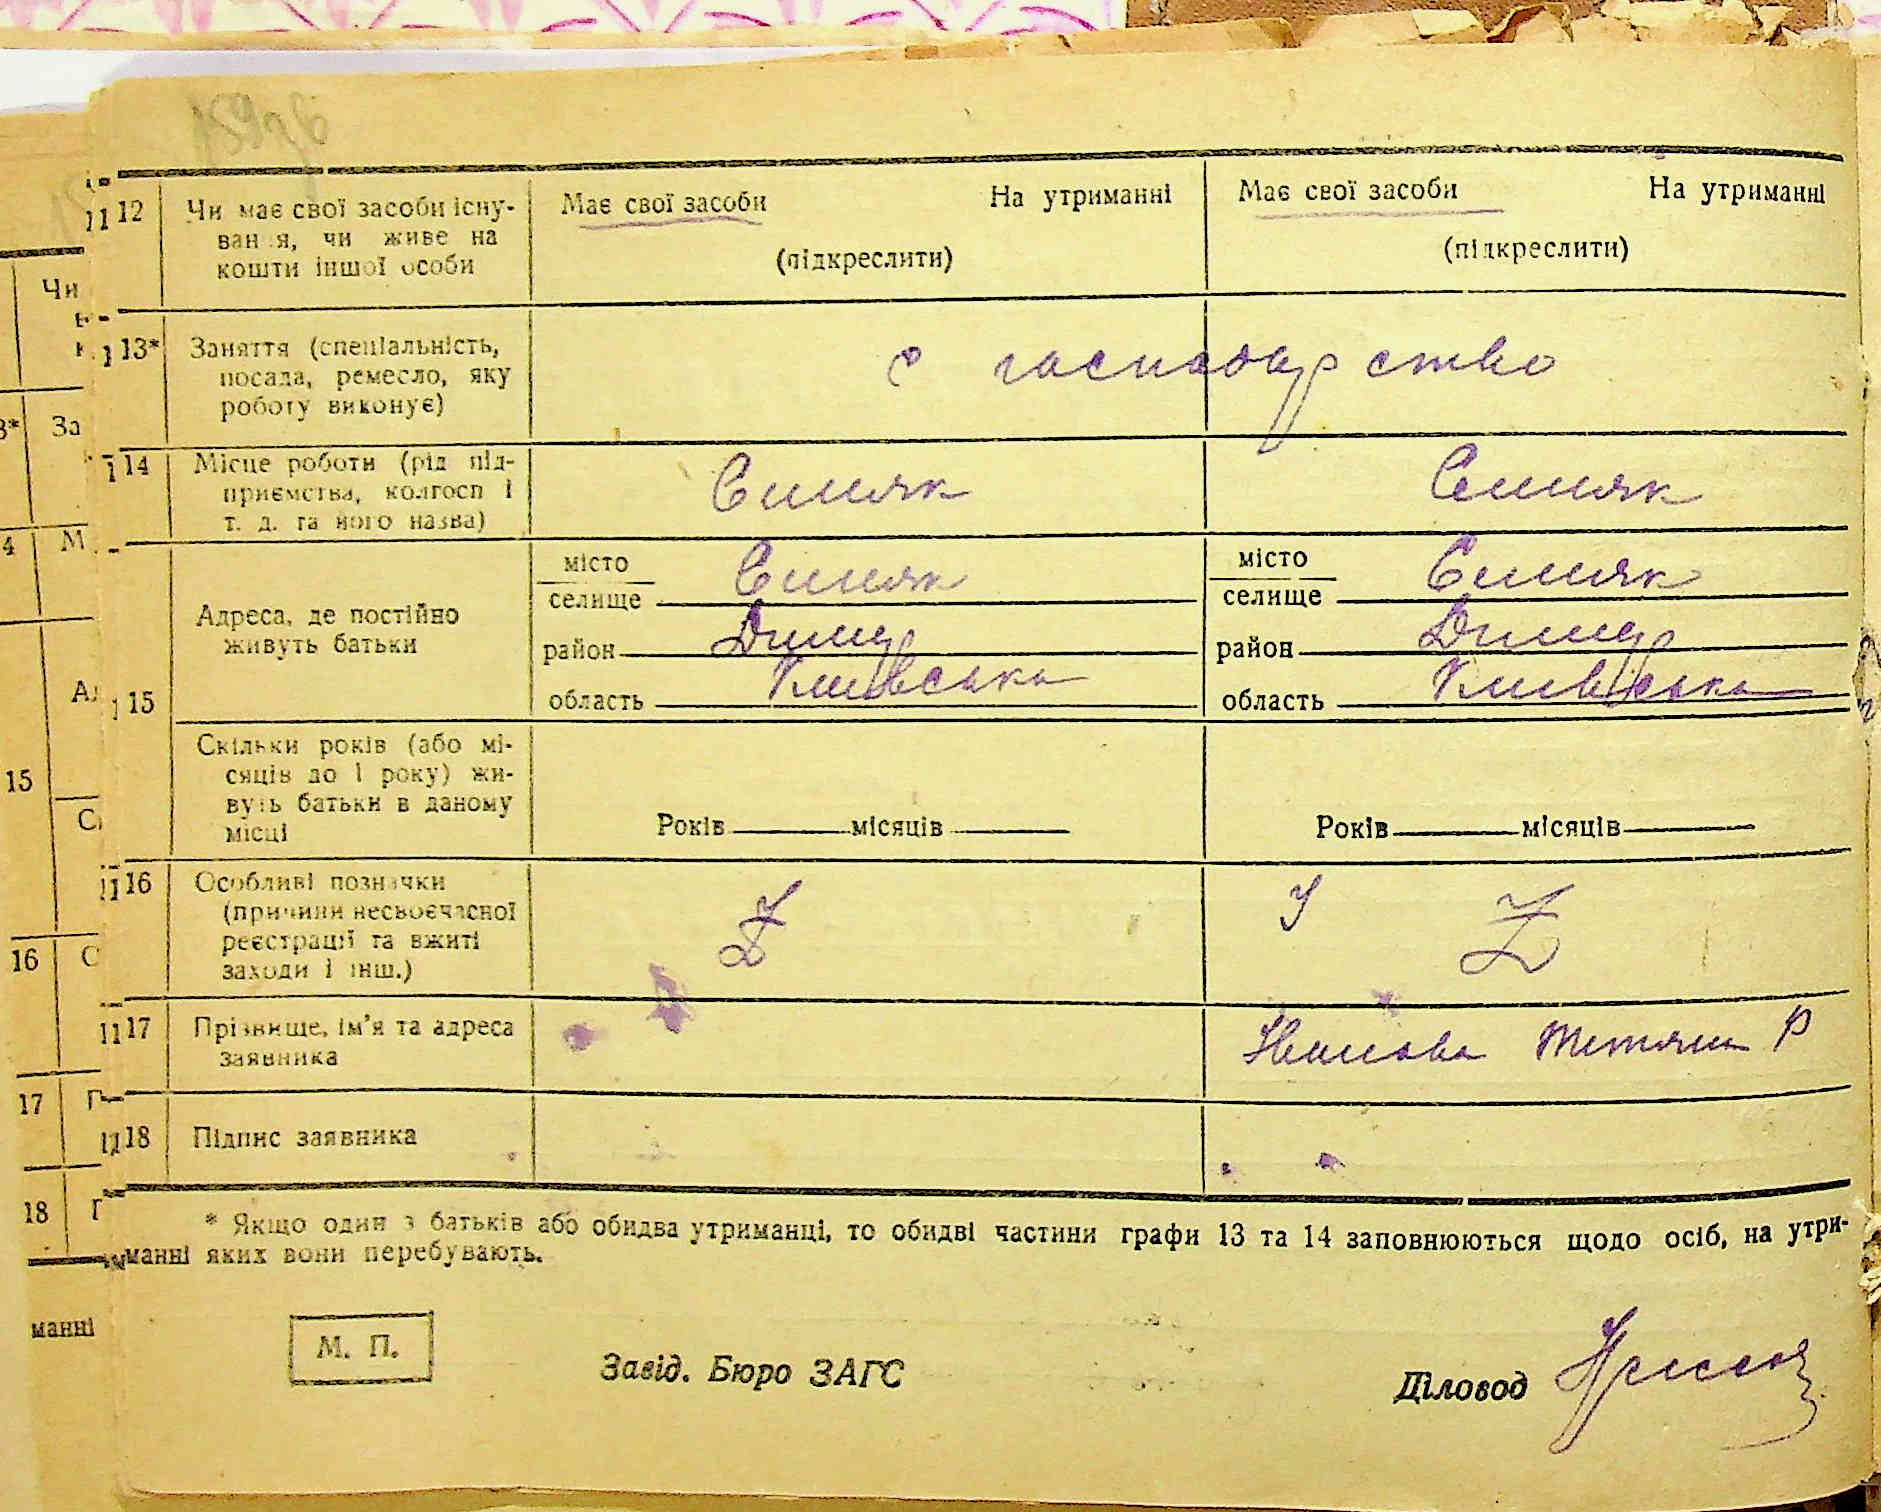 12 Чи має свої засоби існу- Має свої засоби На утриманні Має свої засоби На утриманні
вання, чи живе на (підкреслити) (підкреслити)
кошти іншої особи
13* Заняття (спеціальність, с господарство
посада, ремесло, яку
роботу виконує)
14 Місце роботи (рід під- Синяк Синяк
приємства, колгосп і
т. д. та його назва)
15 Адреса, де постійно
живуть батьки
місто Синяк місто Синяк
селище селище
район Димер район Димер
область Київська область Київська
Скільки років (або мі-
сяців до 1 року) жи-
вуть батьки в даному
місці Років місяців Років місяців
16 Особливі позначки
(причини несвоєчасної
реєстрації та вжиті
заходи і інш.)
17 Прізвище, ім'я та адреса Тетяна Р
заявника
18 Підпис заявника
* Якщо один з батьків або обидва утриманці, то обидві частини графи 13 та 14 заповнюються щодо осіб, на утри-
манні яких вони перебувають.
М. П. Завід. Бюро ЗАГС Діловод
Чи
За
М
15
16 С
17 П
18 П
манні